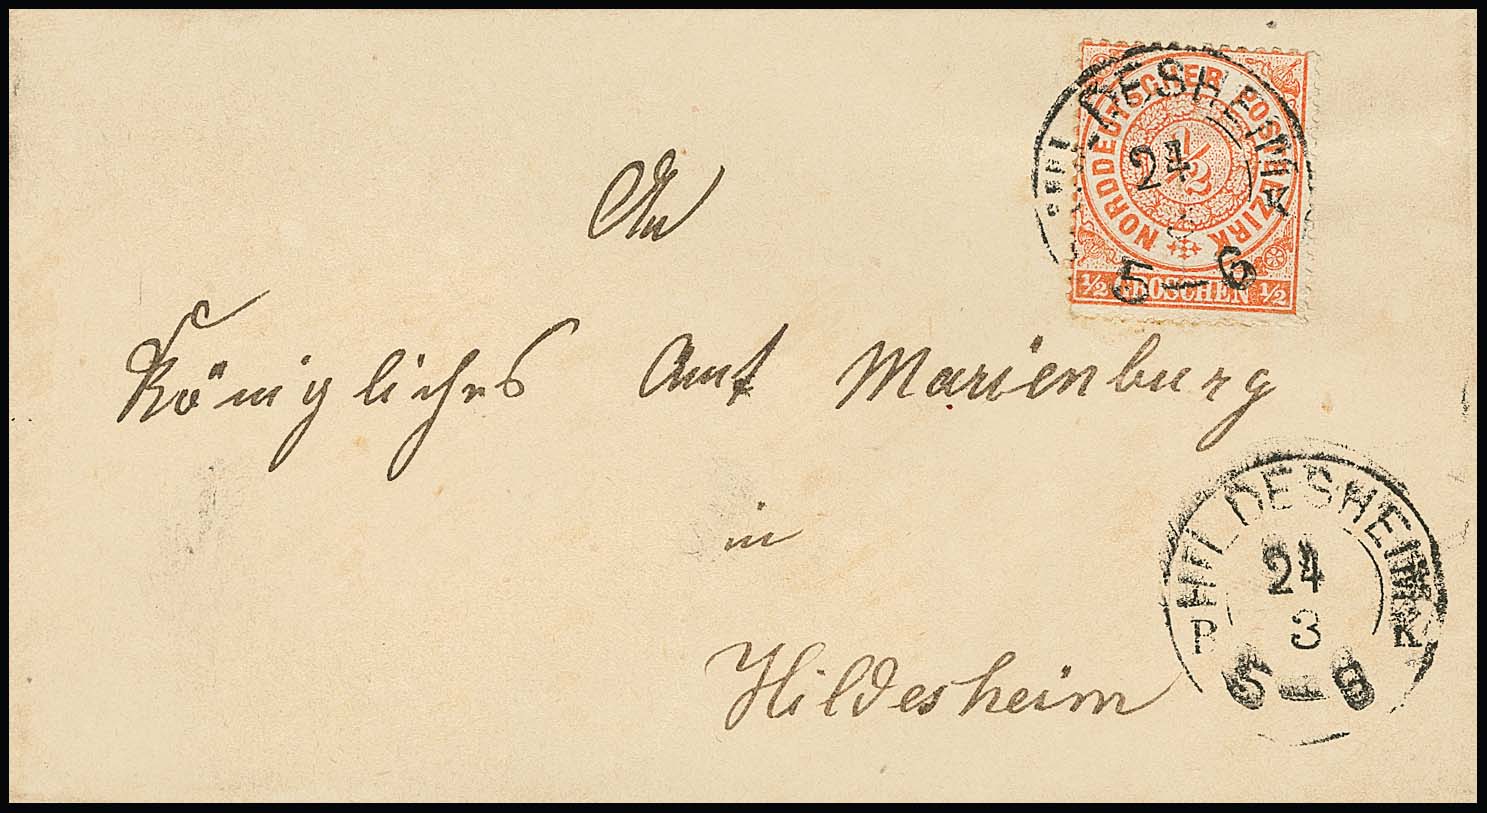 NORDDEUTSCHER POSTBEZIRK
1/2
1/2 GROSCHEN 1/2
HILDESHEIM
24
5-6
An
Königliches Amt Marienburg
in
Hildesheim
HILDESHEIM
24
P 3 K
5-6